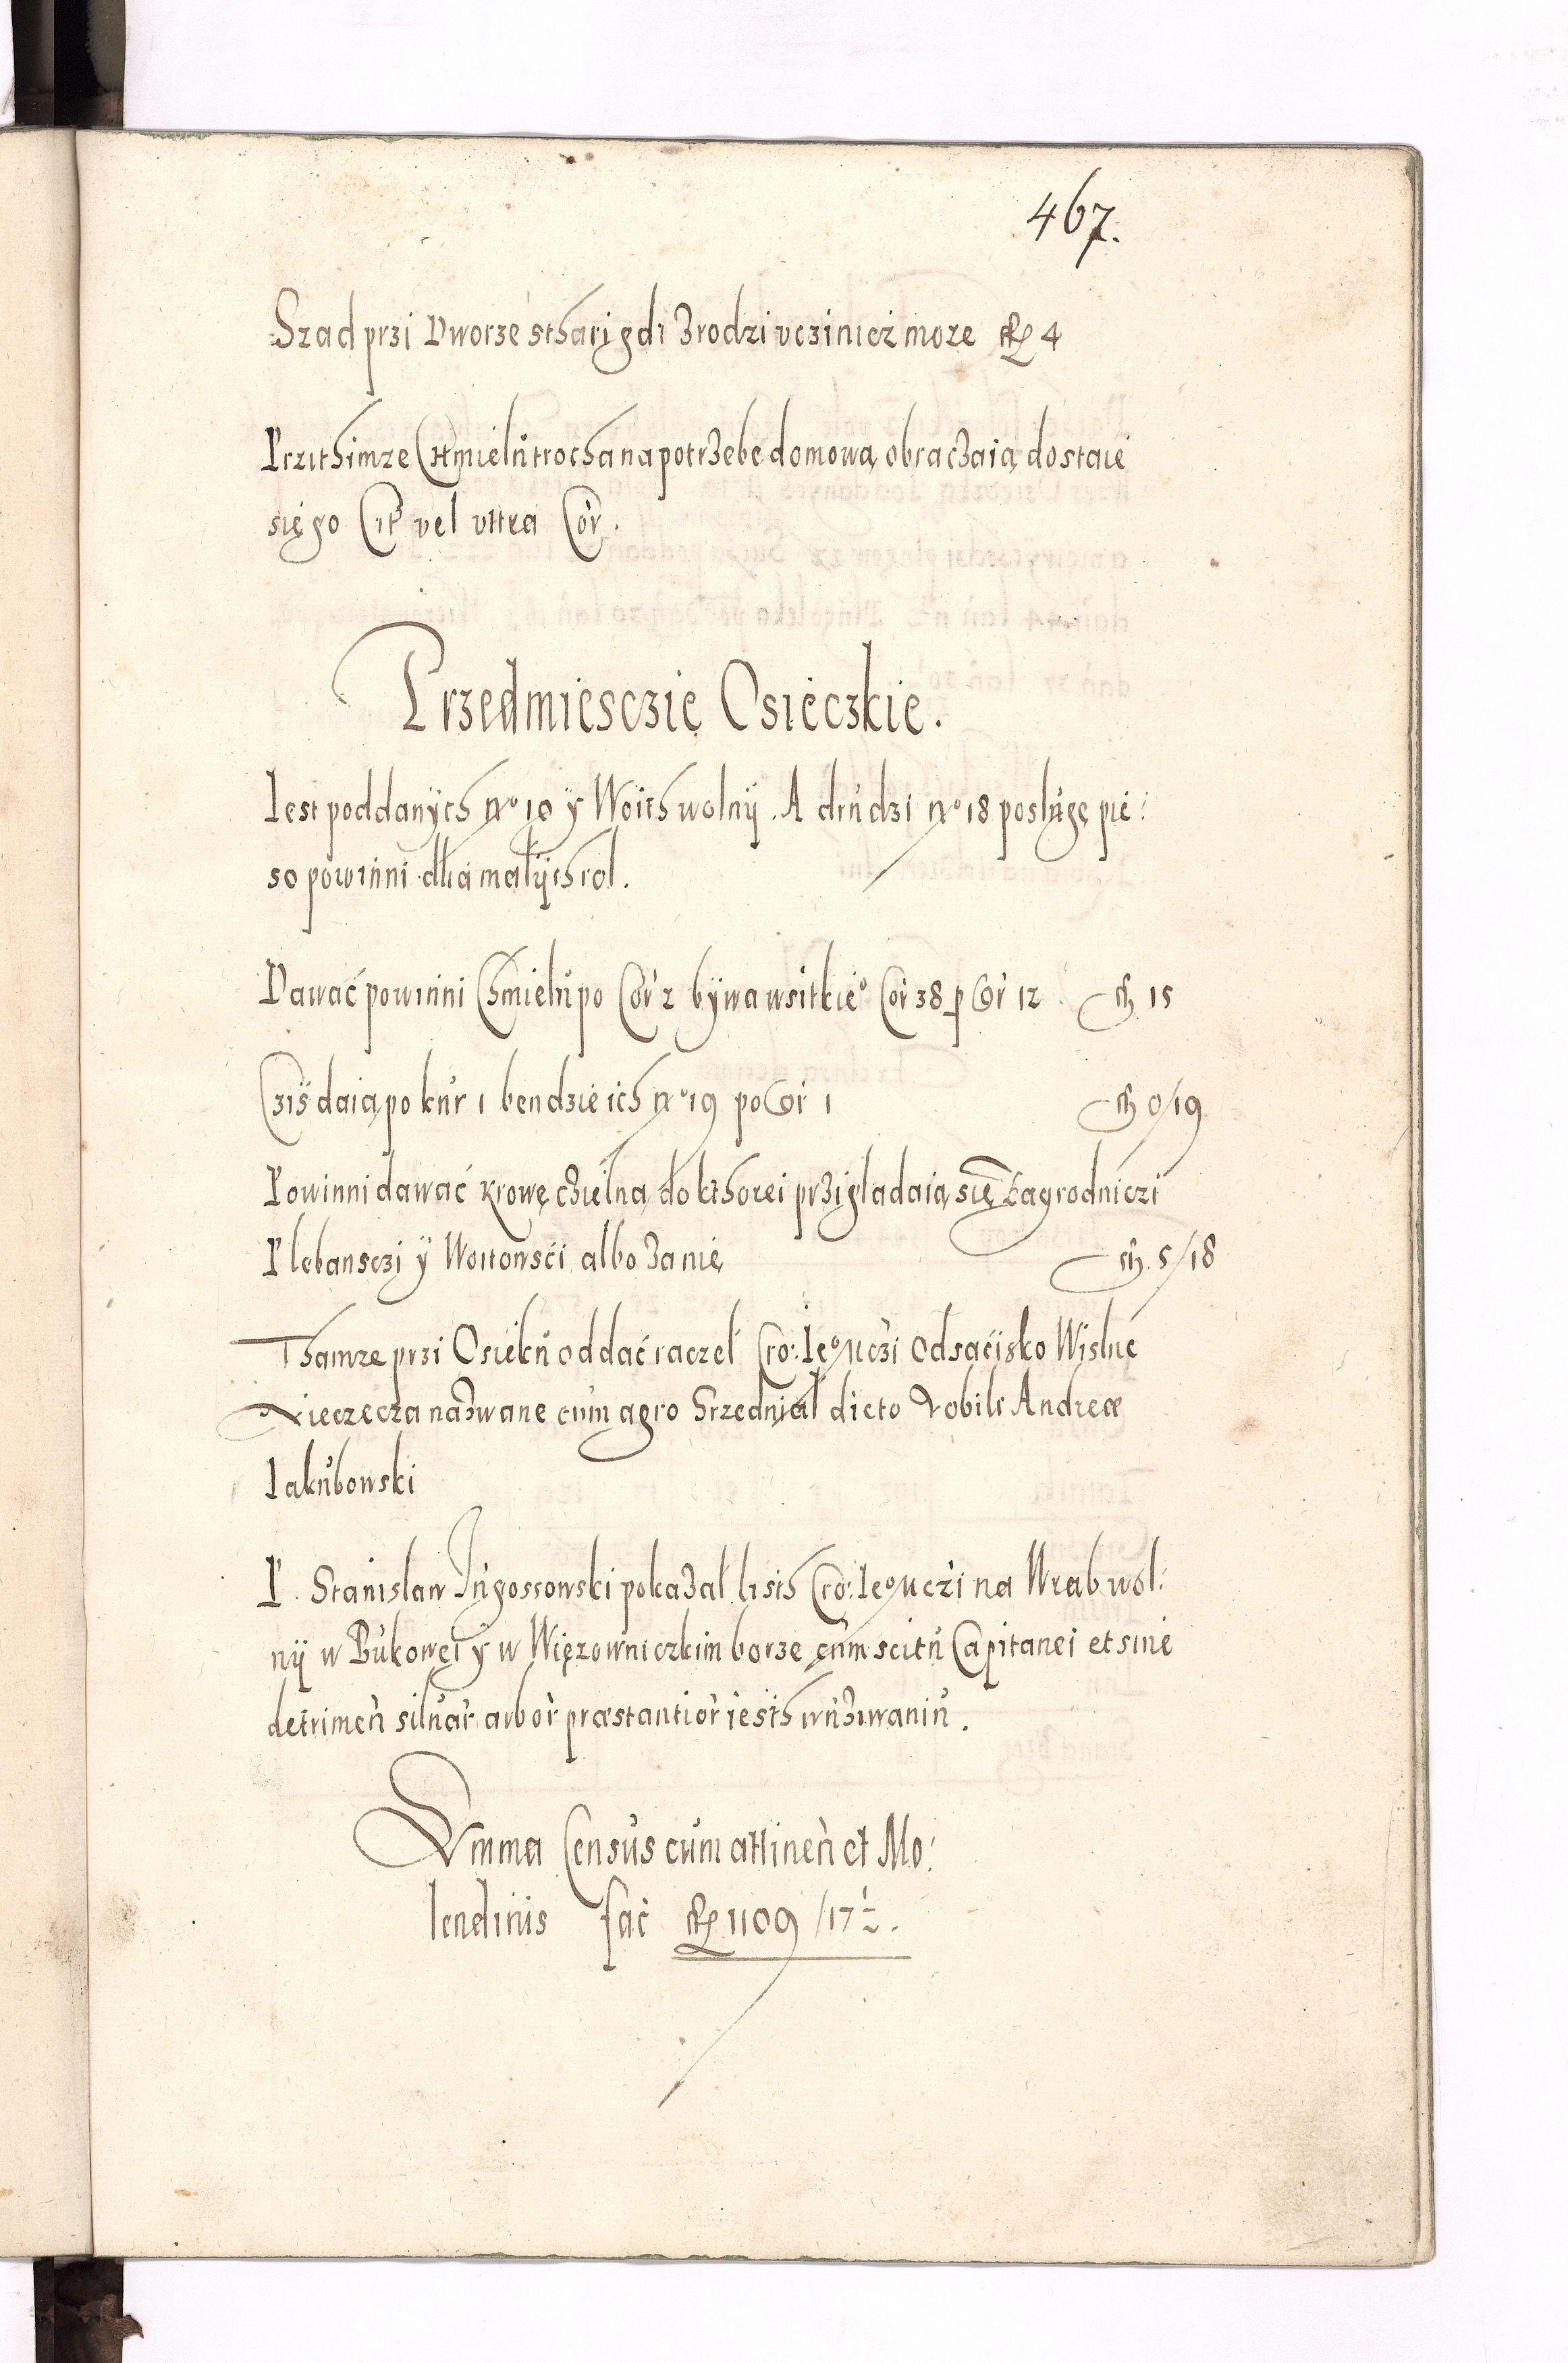 467.
Szad przi Dworze sthari gdi zrodzi vczinicz może 4
Przithimze Chmielu trocha na potrzebę domową obraczaią dostaie
się go Cit vel vltra Cor.
Przedmiesczie Osieczkie.
Iest poddanych No 19 y Woith wolny. A drudzi No 18 posługę pie:
so powinni dlia małych rol.
Dawać powinni Chmielu po Cor 2 bywa wsitkieo Cor 38 p Gr 12 15
Cziż daią po kur 1 bendzie ich No 19 po Gr 1 0/19
Powinni dawać krowę czielną do kthorei przigladaią się zagrodniczi
Plebansczi y Woitowsci albo za nię 5/18
Thamże przi Osieku oddać raczeł Cro: Ieo Mczi Odsacisko Wisłue
Rzeczecza nazwane cum agro Srzedniał dicto Nobili Andreæ
Iakubowski
P. Stanislaw pokazał listh Cro: Ieo Mczi na Wrab wol:
ny w Bukowei y w Więzowniczkim borze cum scitu Capitanei et sine
detrimen siluar arbor præstantior iesth w użiwaniu.
Summa Census cum attinen et Mo:
lendinis fac 1109 /17 ½.